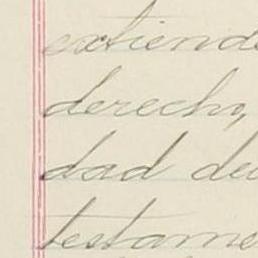 extiende
derecho,
dad de
testame